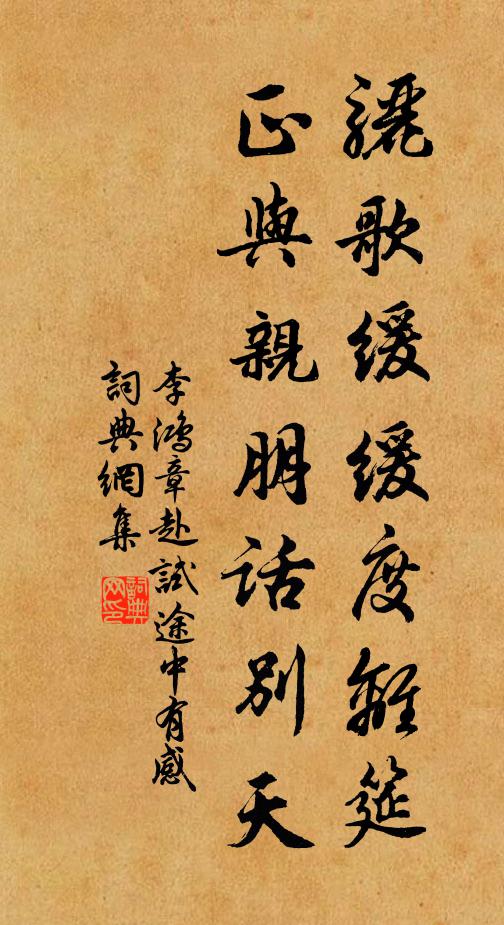 驪歌緩緩度離筵
正與親朋話別天
李鴻章赴試途中有感
詞典網集
詞典網印